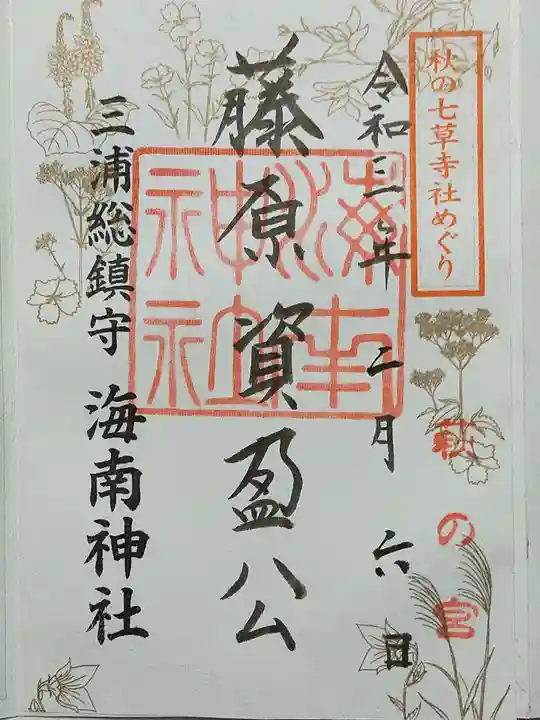 秋の七草寺社めぐり
萩の宮
令和三年二月六日
藤原資盈公
三浦総鎮守 海南神社
海南神社